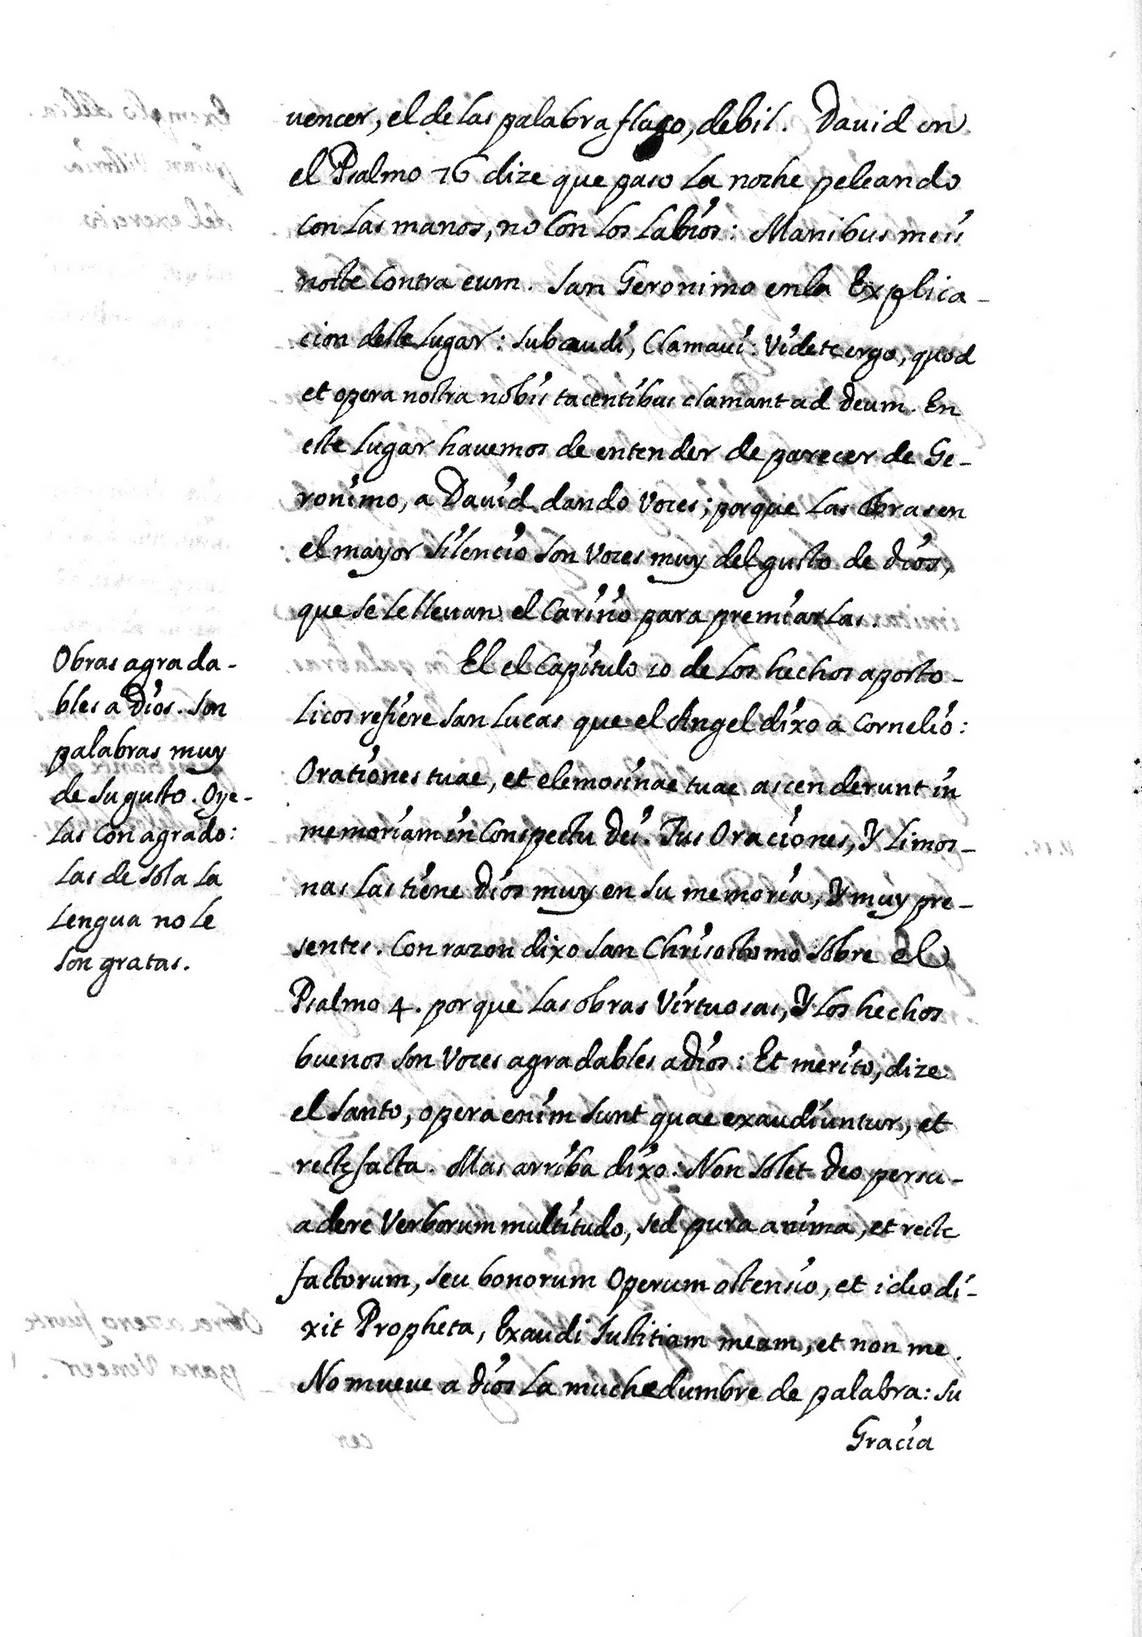 vencer, el de las palabra flaco, debil. David en
el Psalmo 76 dize que paso La noche peleando
con Las manos, no Con Los Labios: Manibus meis
nocte Contra eum. San Geronimo en la Explica-
cion deste Lugar: subaudi, Clamavi: Videte ergo, quod
et opera nostra nobis tacentibus clamant ad deum. En
este Lugar havemos de entender de parecer de Ge-
ronimo, a David dando Voces; porque Las Obras en
el mayor silencio son Voces muy del gusto de dios,
que se le llevan el Cariño para premiarlas.
El el Capitulo 10 de Los hechos aposto-
Licos refiere San Lucas que el Angel dixo a Cornelio:
Orationes tuae, et elemosinae tuae ascenderunt in
memoriam in Conspectu dei. Tus Oraciones, Y Limos-
nas Las tiene dios muy en su memoria, Y muy pre-
sentes. Con razon dixo San Chrisostomo sobre el
Psalmo 4. porque Las obras Virtuosas, Y Los hechos
buenos son Voces agradables a dios: Et merito, dize
el Santo, opera enim sunt quae exaudiuntur, et
recte facta. Mas arriba dixo: Non solet deo persu-
adere Verborum multitudo, sed pura anima, et recte
factorum, seu bonorum Operum ostensio, et ideo di-
xit Propheta, Exaudi Iustitiam meam, et non me.
No mueve a dios La muchedumbre de palabra: su
Gracia
Obras agrada-
bles a Dios. Son
palabras muy
de su gusto. Oye-
Las con agrado:
Las de sola La
Lengua no le
son gratas.